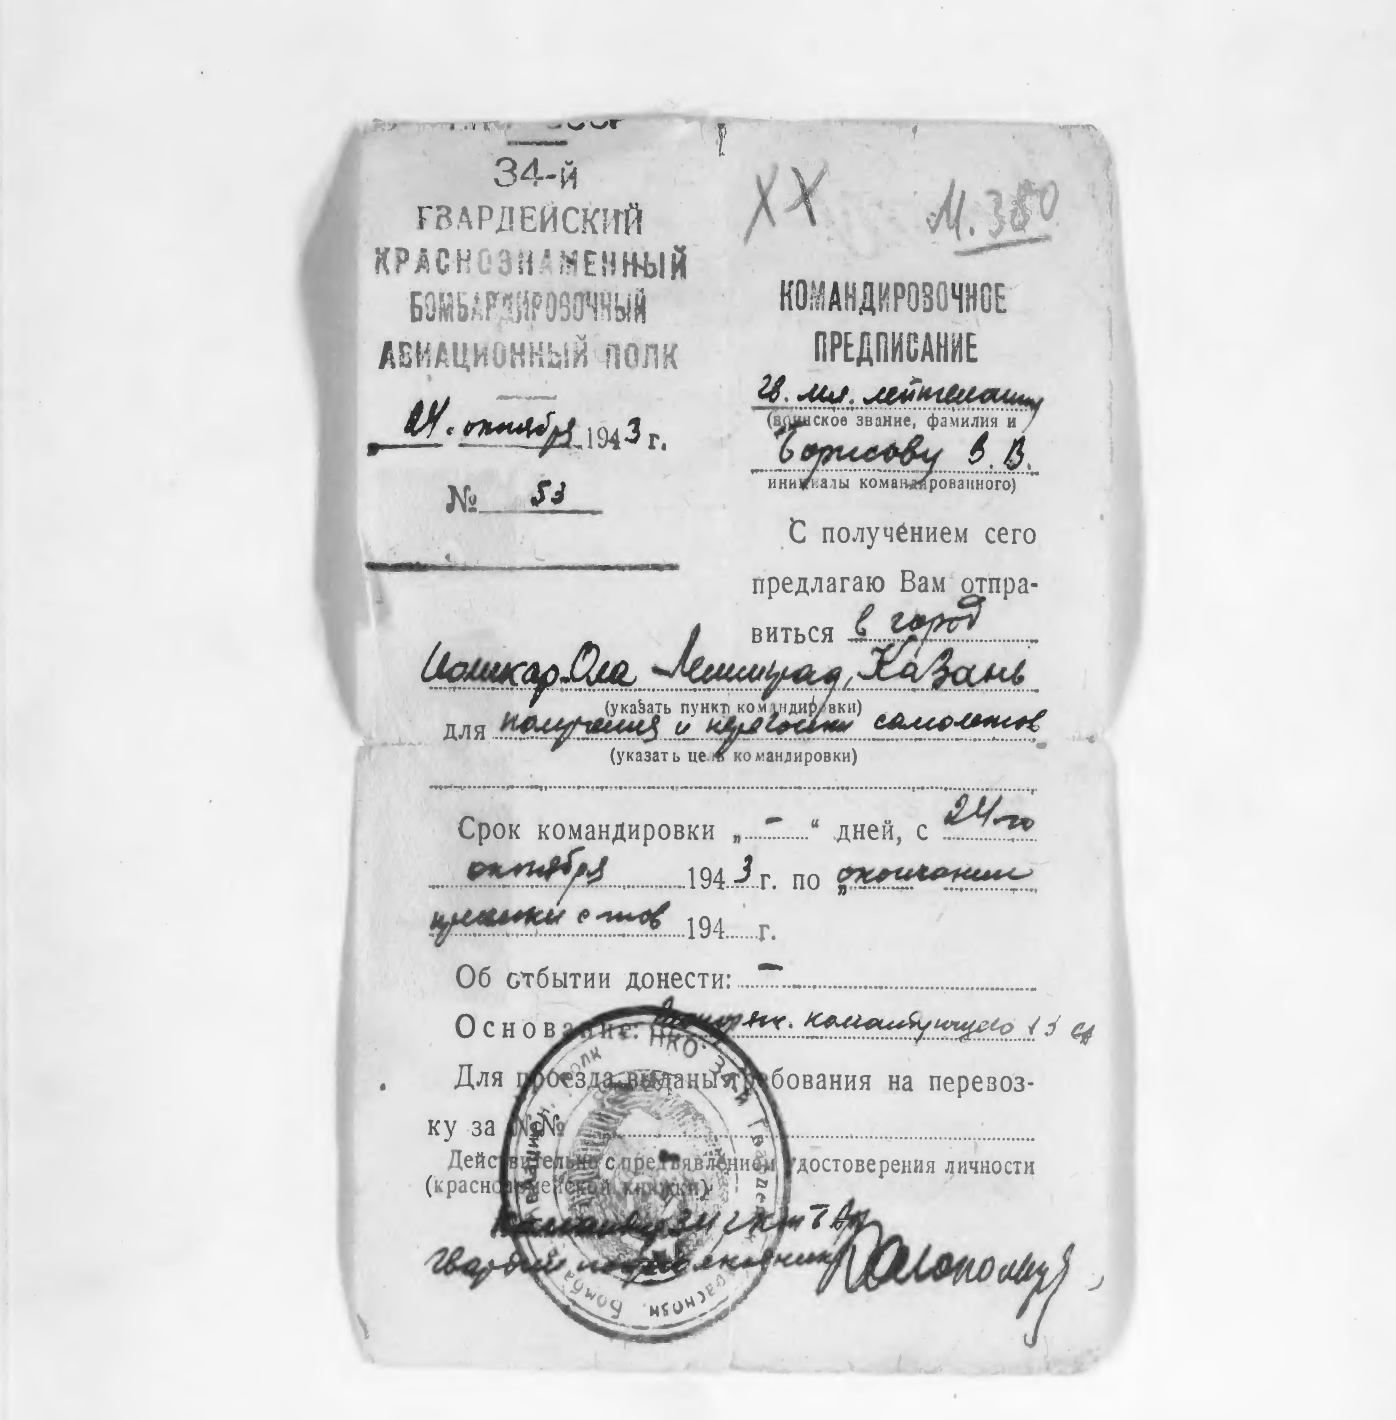 34-й
ГВАРДЕЙСКИЙ
КРАСНОЗНАМЕННЫЙ
БОМБАРДИРОВОЧНЫЙ
АВИАЦИОННЫЙ ПОЛК
24. октября 1943 г.
№ 53
XX М. 380
КОМАНДИРОВОЧНОЕ
ПРЕДПИСАНИЕ
гв. мл. лейтенанту
(воинское звание, фамилия и
Борисову В. В.
инициалы командированного)
С получением сего
предлагаю Вам отпра-
виться в город
Иошкар-Ола Ленинград, Казань
(указать пункт командировки)
для получения и перегонки самолетов
(указать цель командировки)
Срок командировки „ - “ дней, с 24-го
октября 1943 г. по окончании
194 г.
Об отбытии донести: -
Основание: командующего 13
Для проезда выданы требования на перевоз-
ку за №№ -
Действительно с предъявлением удостоверения личности
(красноармейской книжки).
Командир 34
гвардии
НКО 34й Гвардейск. Краснозн. Бомб. Авиацион. Полк